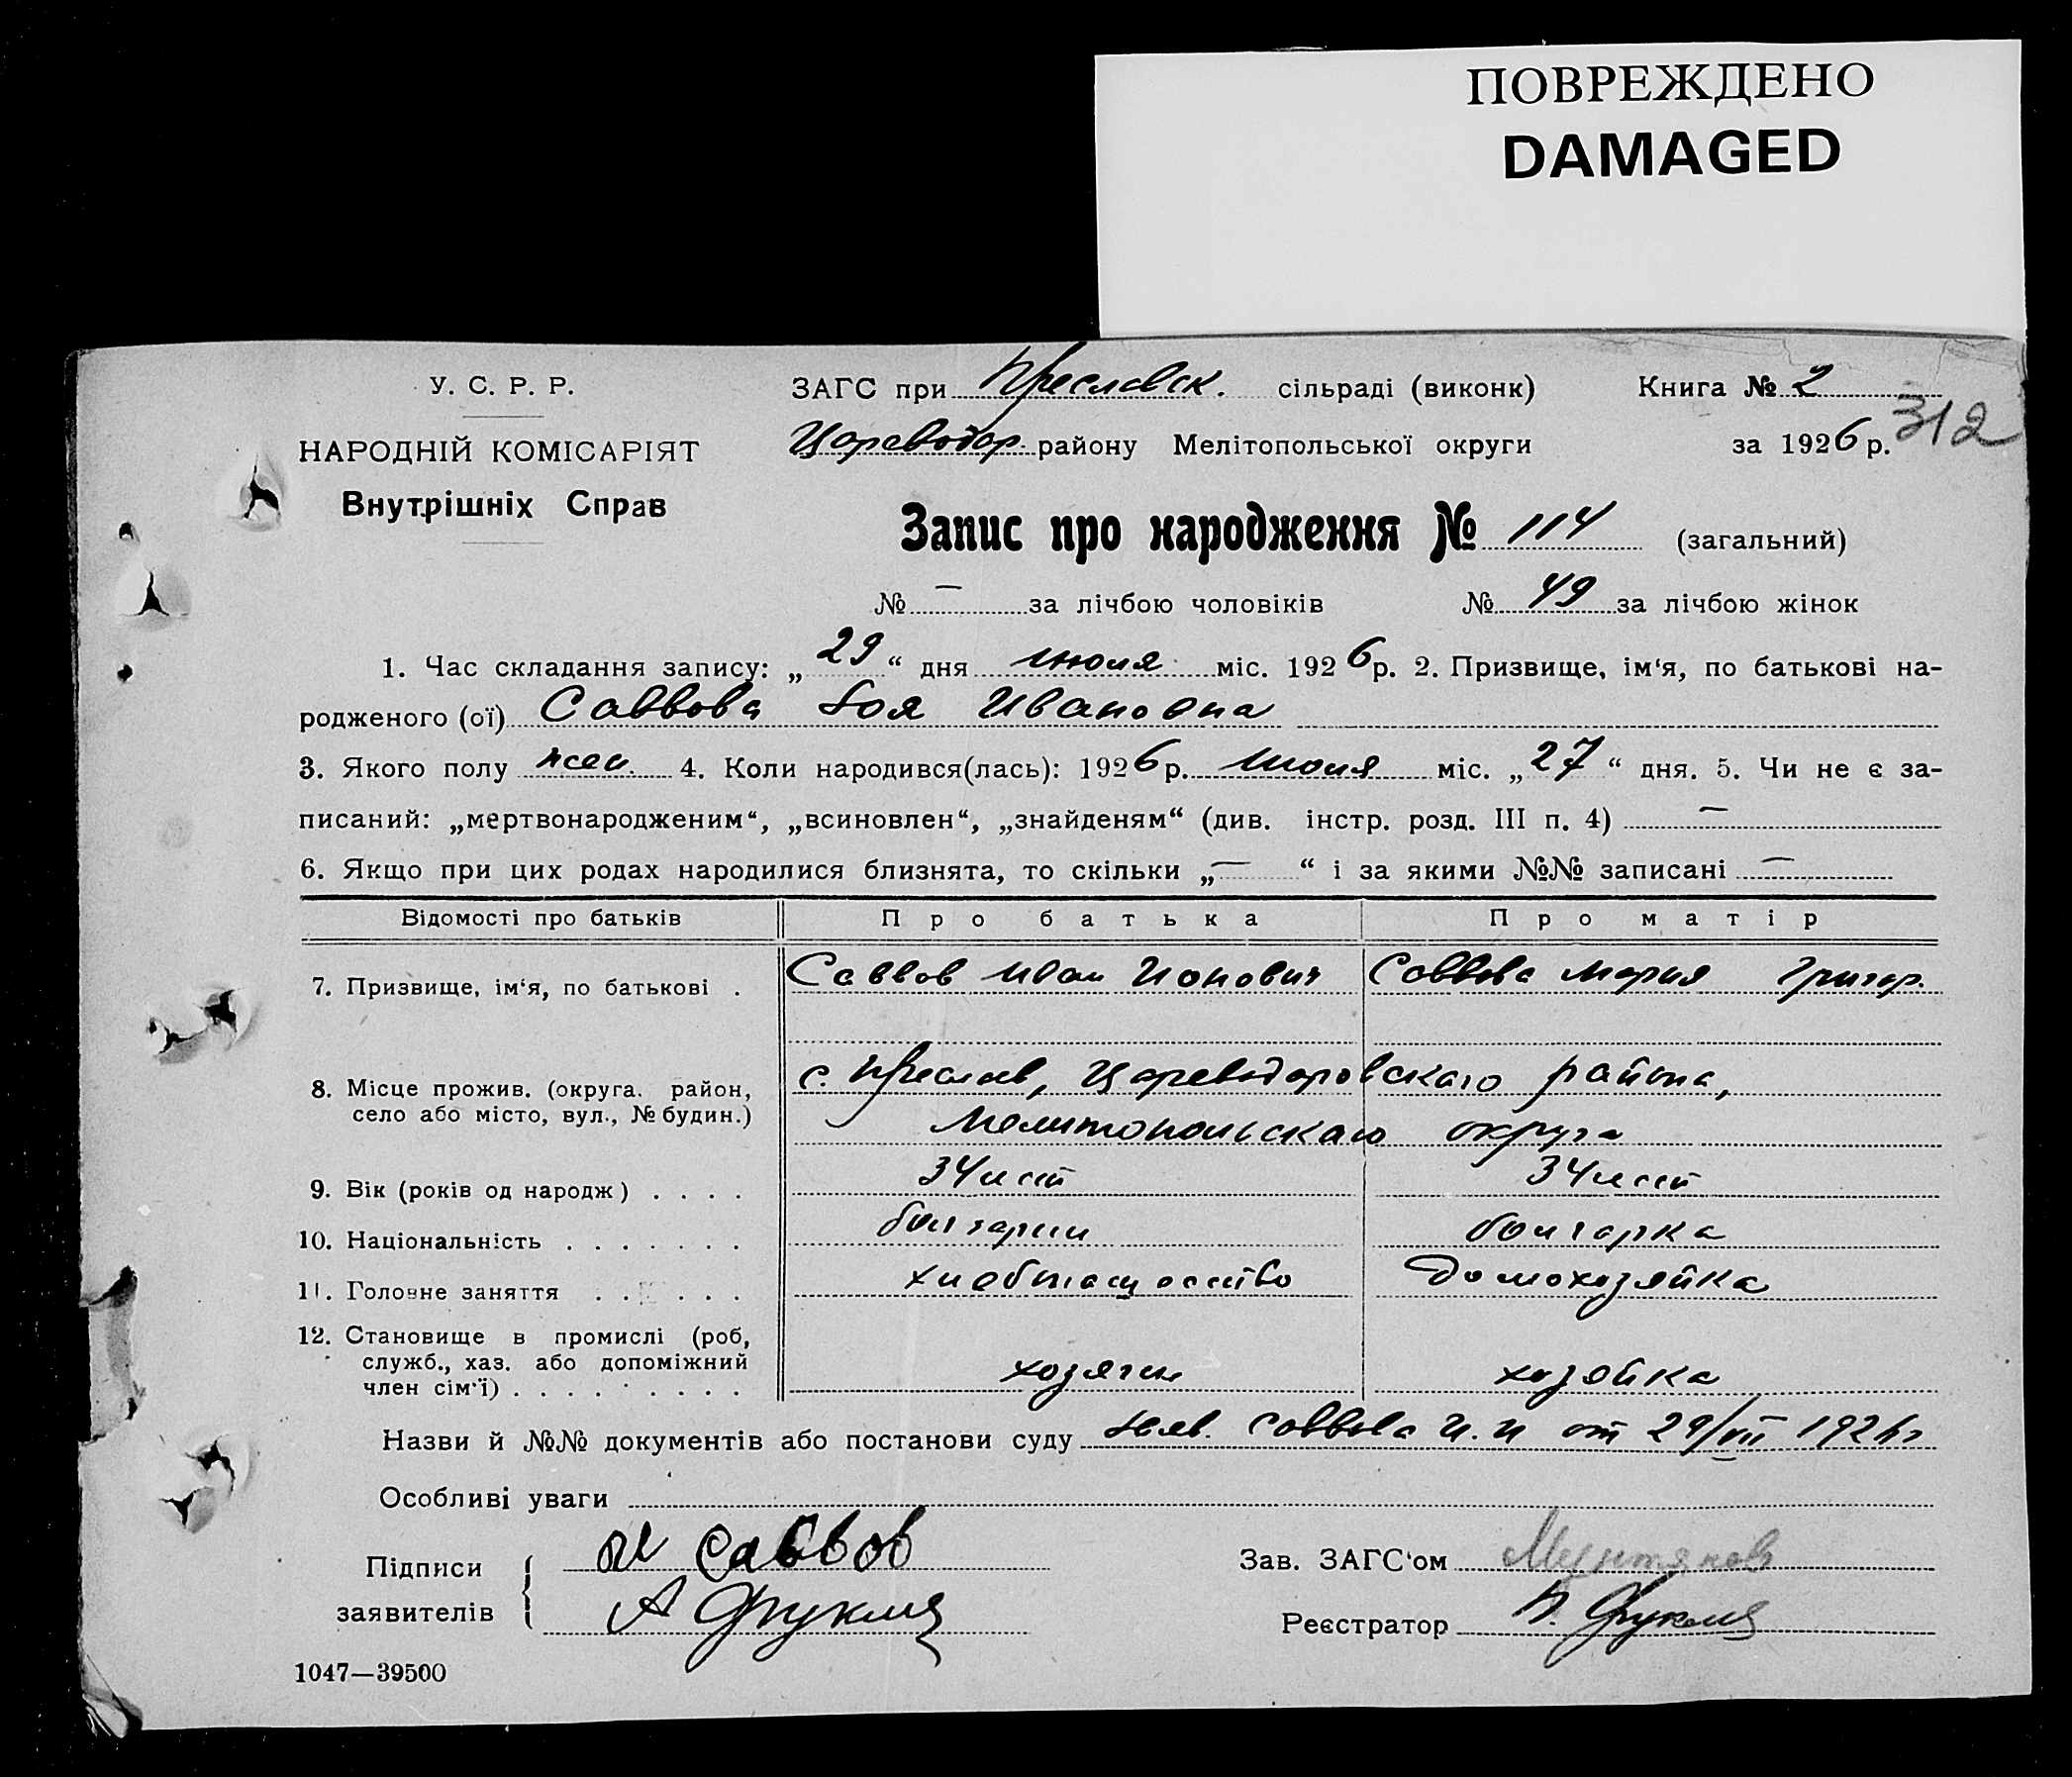 ПОВРЕЖДЕНО
DAMAGED
У. С. Р. Р.
ЗАГС при Преславск. сільраді (виконк) Книга № 2
312
НАРОДНІЙ КОМІСАРІЯТ
Цареводар. району Мелітопольської округи за 1926 р.
Внутрішніх Справ
Запис про народження № 114 (загальний)
№ — за лічбою чоловіків № 49 за лічбою жінок
1. Час складання запису: „29“ дня июля міс. 1926 р. 2. Призвище, ім‘я, по батькові на-
родженого (ої) Саввова Зоя Ивановна
3. Якого полу жен. 4. Коли народився(лась): 1926 р. июля міс. „27“ дня. 5. Чи не є за-
писаний: „мертвонародженим“, „всиновлен“, „знайденям“ (див. інстр. розд. III п. 4) —
6. Якщо при цих родах народилися близнята, то скільки „—“ і за якими №№ записані —
Відомості про батьків Про батька Про матір
7. Призвище, ім‘я, по батькові . Саввов Иван Ионович Саввова Мария Григор.
8. Місце прожив. (округа. район, село або місто, вул., № будин.) с. Преслав, Цареводаровскаго района,
Мелитопольскаго округа
9. Вік (років од народж) . . . . 34 лет 34 лет
10. Національність . . . . . . . болгарин болгарка
11. Головне заняття . . . . . . хлебопашество домохозяйка
12. Становище в промислі (роб,
служб., хаз. або допоміжний
член сім‘ї) . . . . . . . . . . хозяин хозяйка
Назви й №№ документів або постанови суду Заяв. Саввова И. И от 29/VII 1926 г
Особливі уваги
Підписи заявителів { И Саввов
А Фуклев
Зав. ЗАГС‘ом Мунтянов
Реєстратор
1047—39500